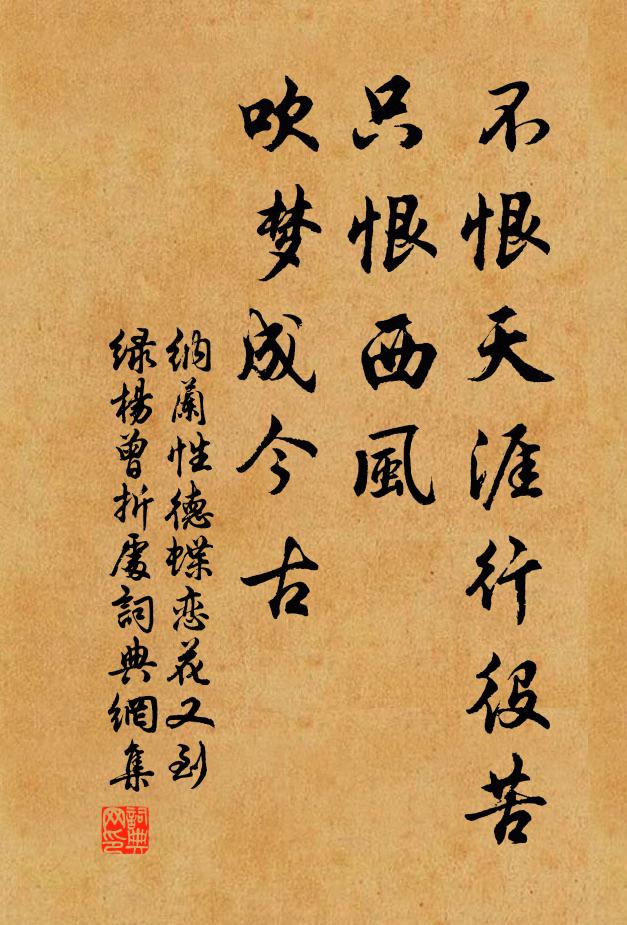 不恨天涯行役苦
只恨西風
吹梦成今古
纳蘭性德蝶恋花又到
绿楊曾折處詞典網集
詞典网印